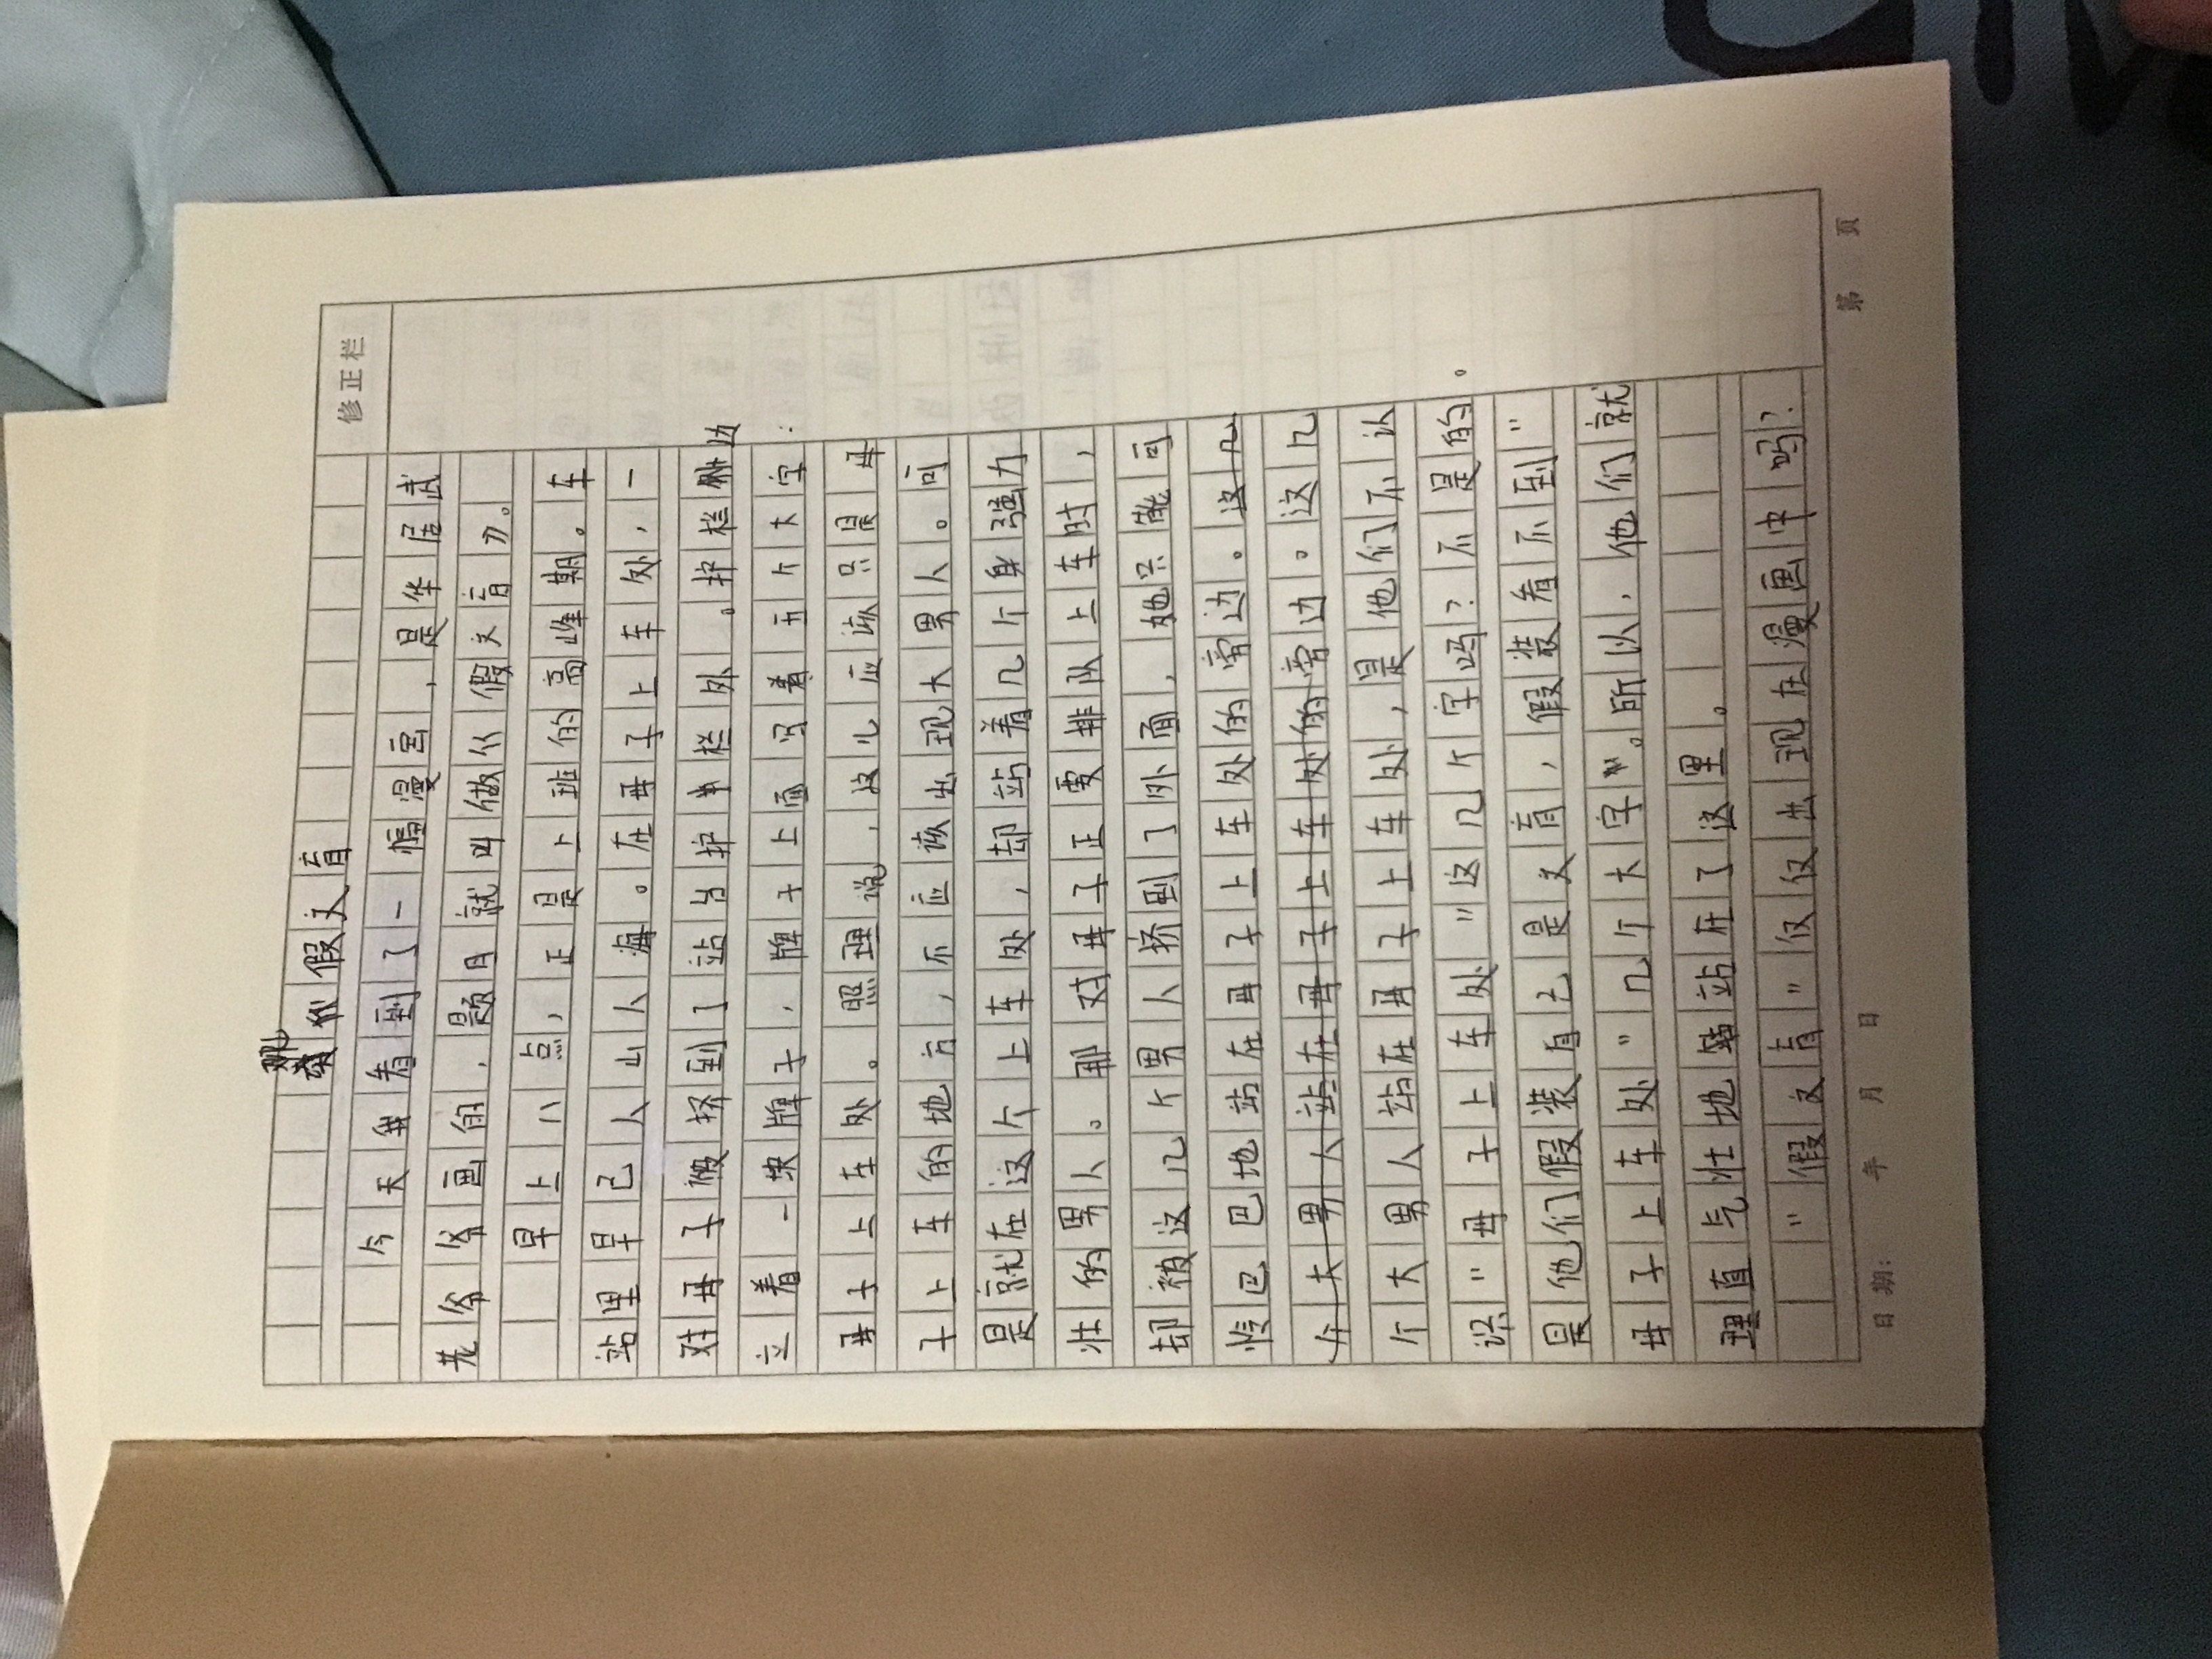 修正栏
假文盲
今天我看到了一幅漫画,是华居武
先爷爷画的,题目就叫做《假文盲》。
早上八点,正是上班的高峰期。车
站里早已人山人海。在母子上车处,一
对母子被挤到了站台护栏外。护栏边
立着一块牌子,牌子上面写着五个大字:
母子上车处。照理说,这儿应该只是母
子上车的地方,不应该出现大男人。可
是就在这个上车处,却站着几个身强力
壮的男人。那对母子正要排队上车时,
却被这几个男人挤到了外面,她只能可
怜巴巴地站在母子上车处的旁边。这几
个大男人站在母子上车处的旁边。这几
个大男人站在母子上车处,是他们不认
识"母子上车处"这几个字吗?不是的。
是他们假装自己是文盲,假装看不到"
母子上车处"几个大字。所以,他们就
理直气壮地站在了这里。
"假文盲"仅仅出现在漫画中吗?
日期: 年 月 日 第 页